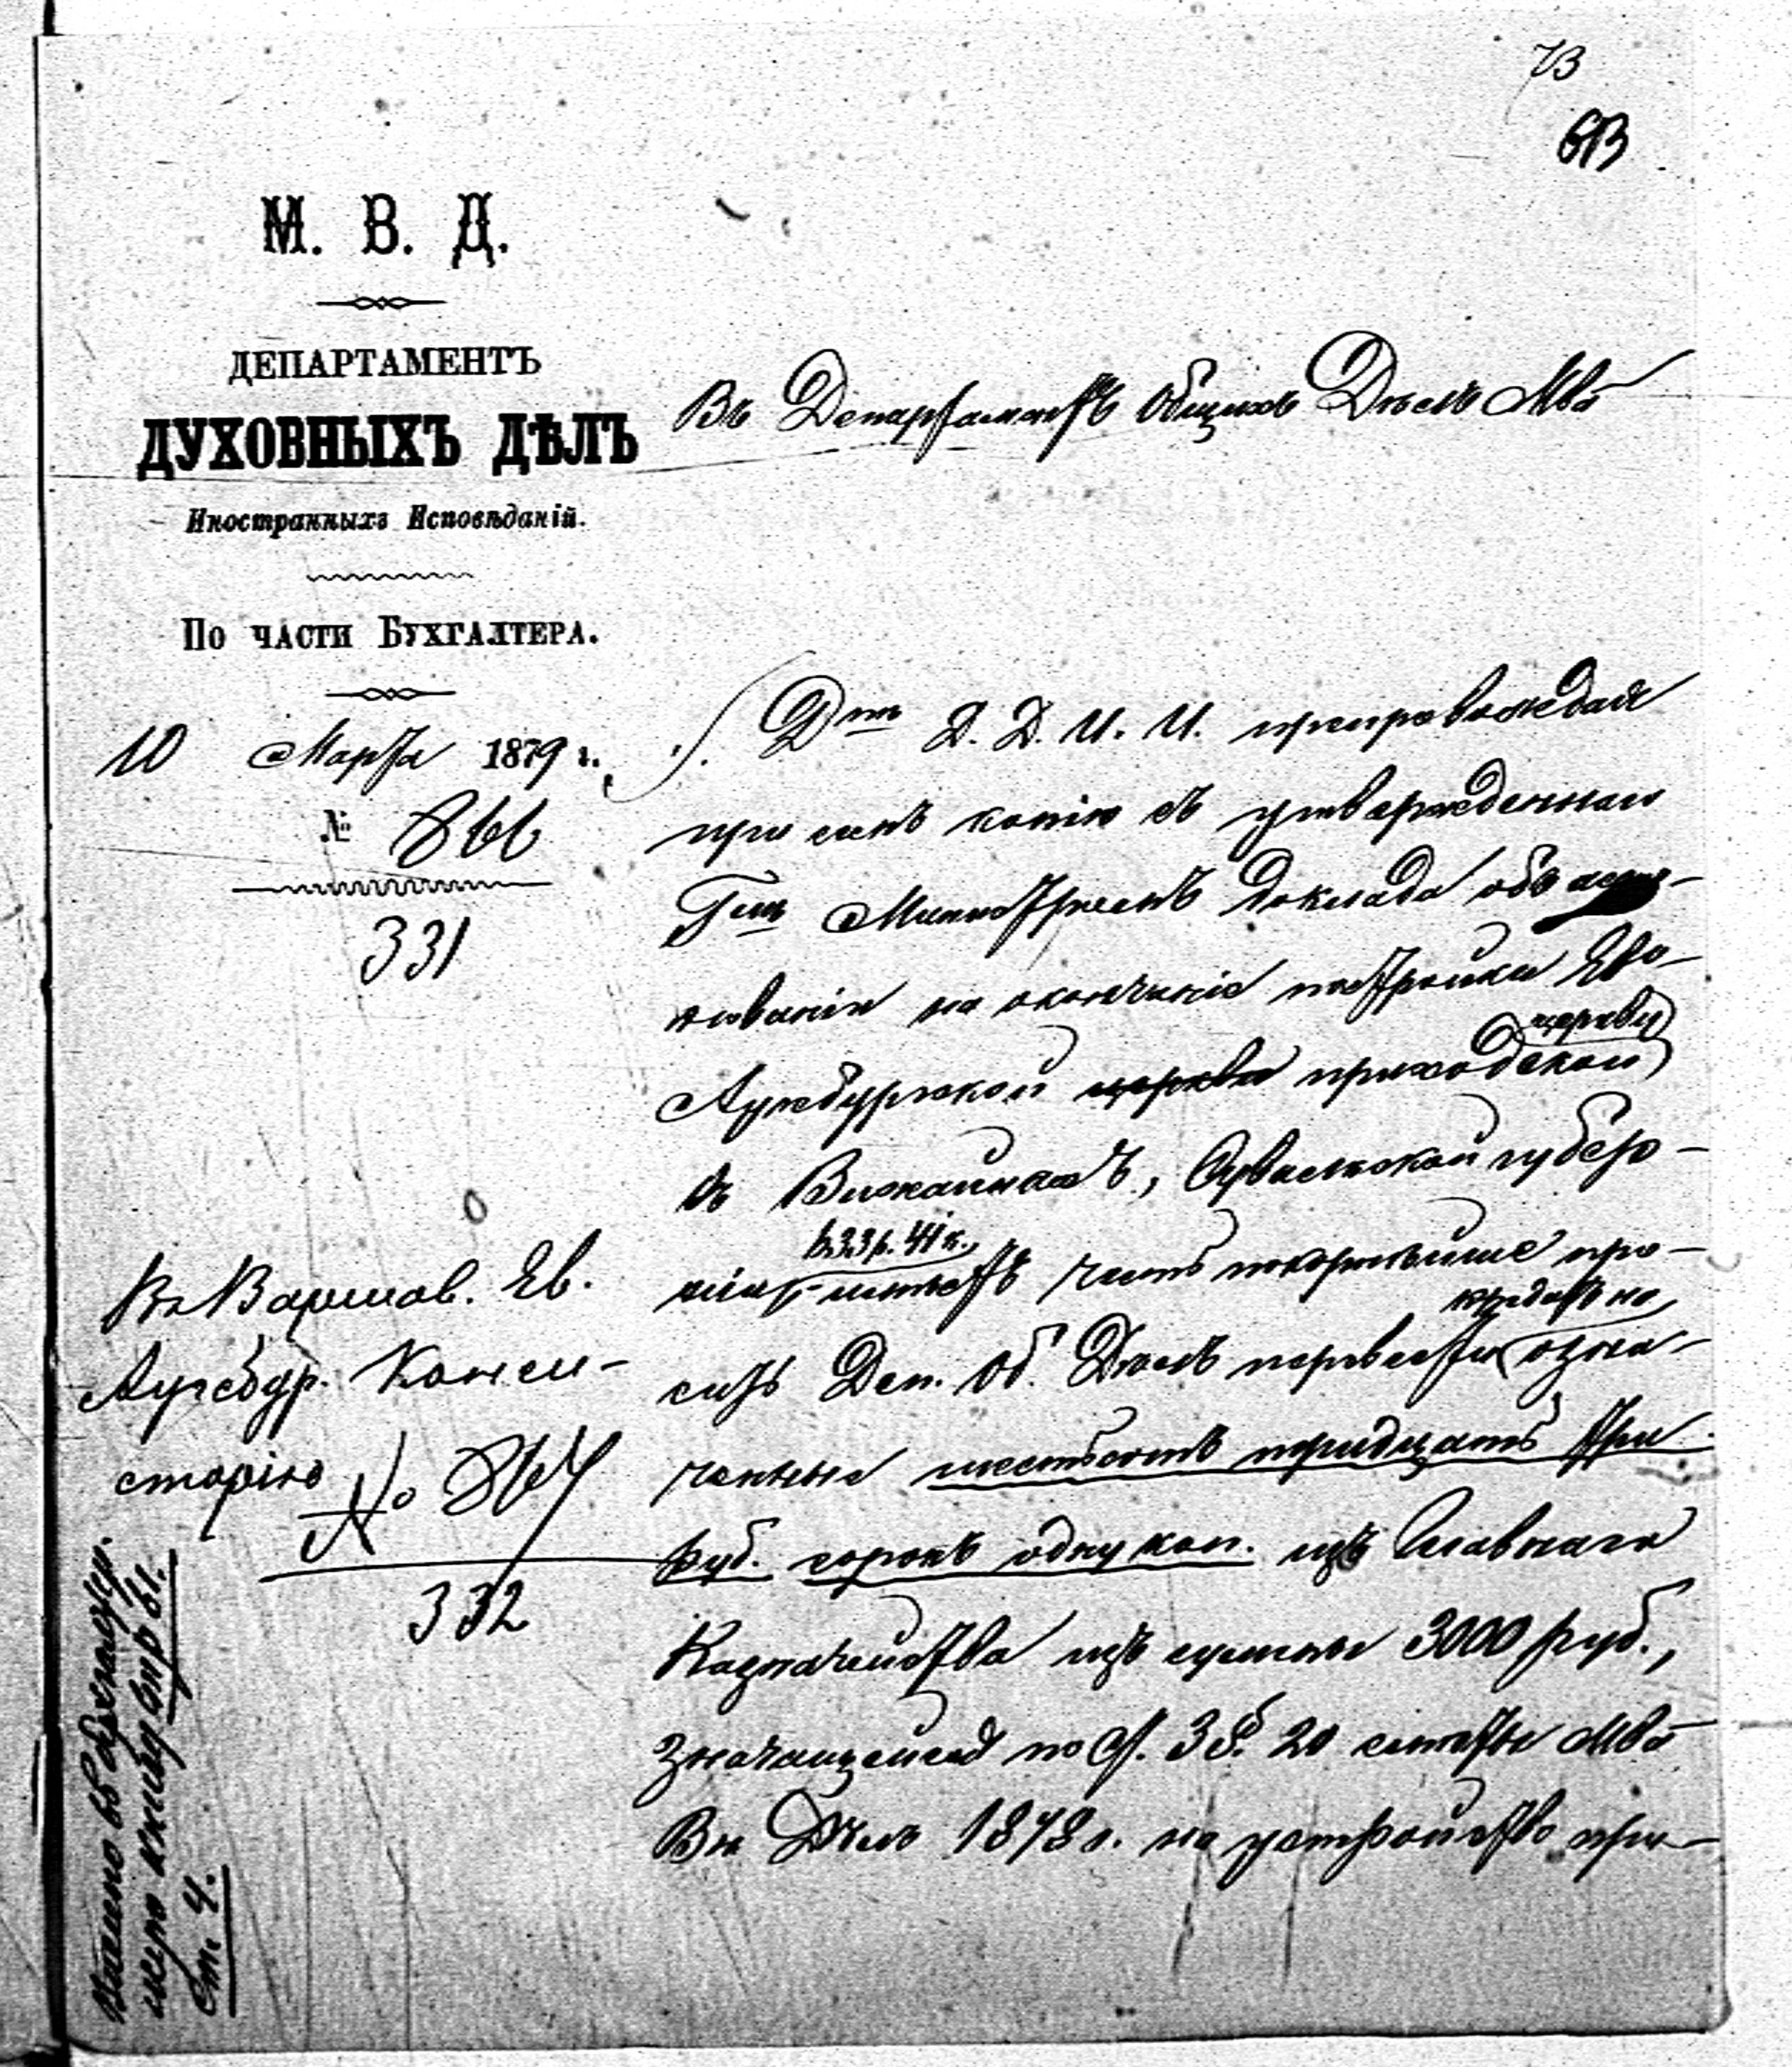 73
М. В. Д.
ДЕПАРТАМЕНТЪ
ДУХОВНЫХЪ ДѢЛЪ
Иностранныхъ Исповѣданій.
По части Бухгалтера.
10 Марта 1879 г.
№ 866
331
Въ Варшав. Ев.
Аугсбур. Конси-
сторію № 864
332
Въ Департаментъ Общихъ Дѣлъ Мва
Дтъ Д. Д. И. И. препровождая
при семъ копію съ утвержденнаго
Гмъ Министромъ доклада объ ассиг-
нованіи на окончаніе постройки Ева-
церкви
Аугсбургской церкви приходской
въ Вижайнахъ, Сувалкской губер-
633 р. 41 к.,
ніи, имѣетъ честь покорнѣйше про-
сить Деп. Об. Дѣлъ перевести озна-
ченные шестьсотъ тридцать три
руб. сорокъ одну коп. изъ Главнаго
Казначейства изъ суммы 3000 руб.,
значащейся по § 20 смѣты Мва
Вн Дѣлъ 1878 г. на устройство при-